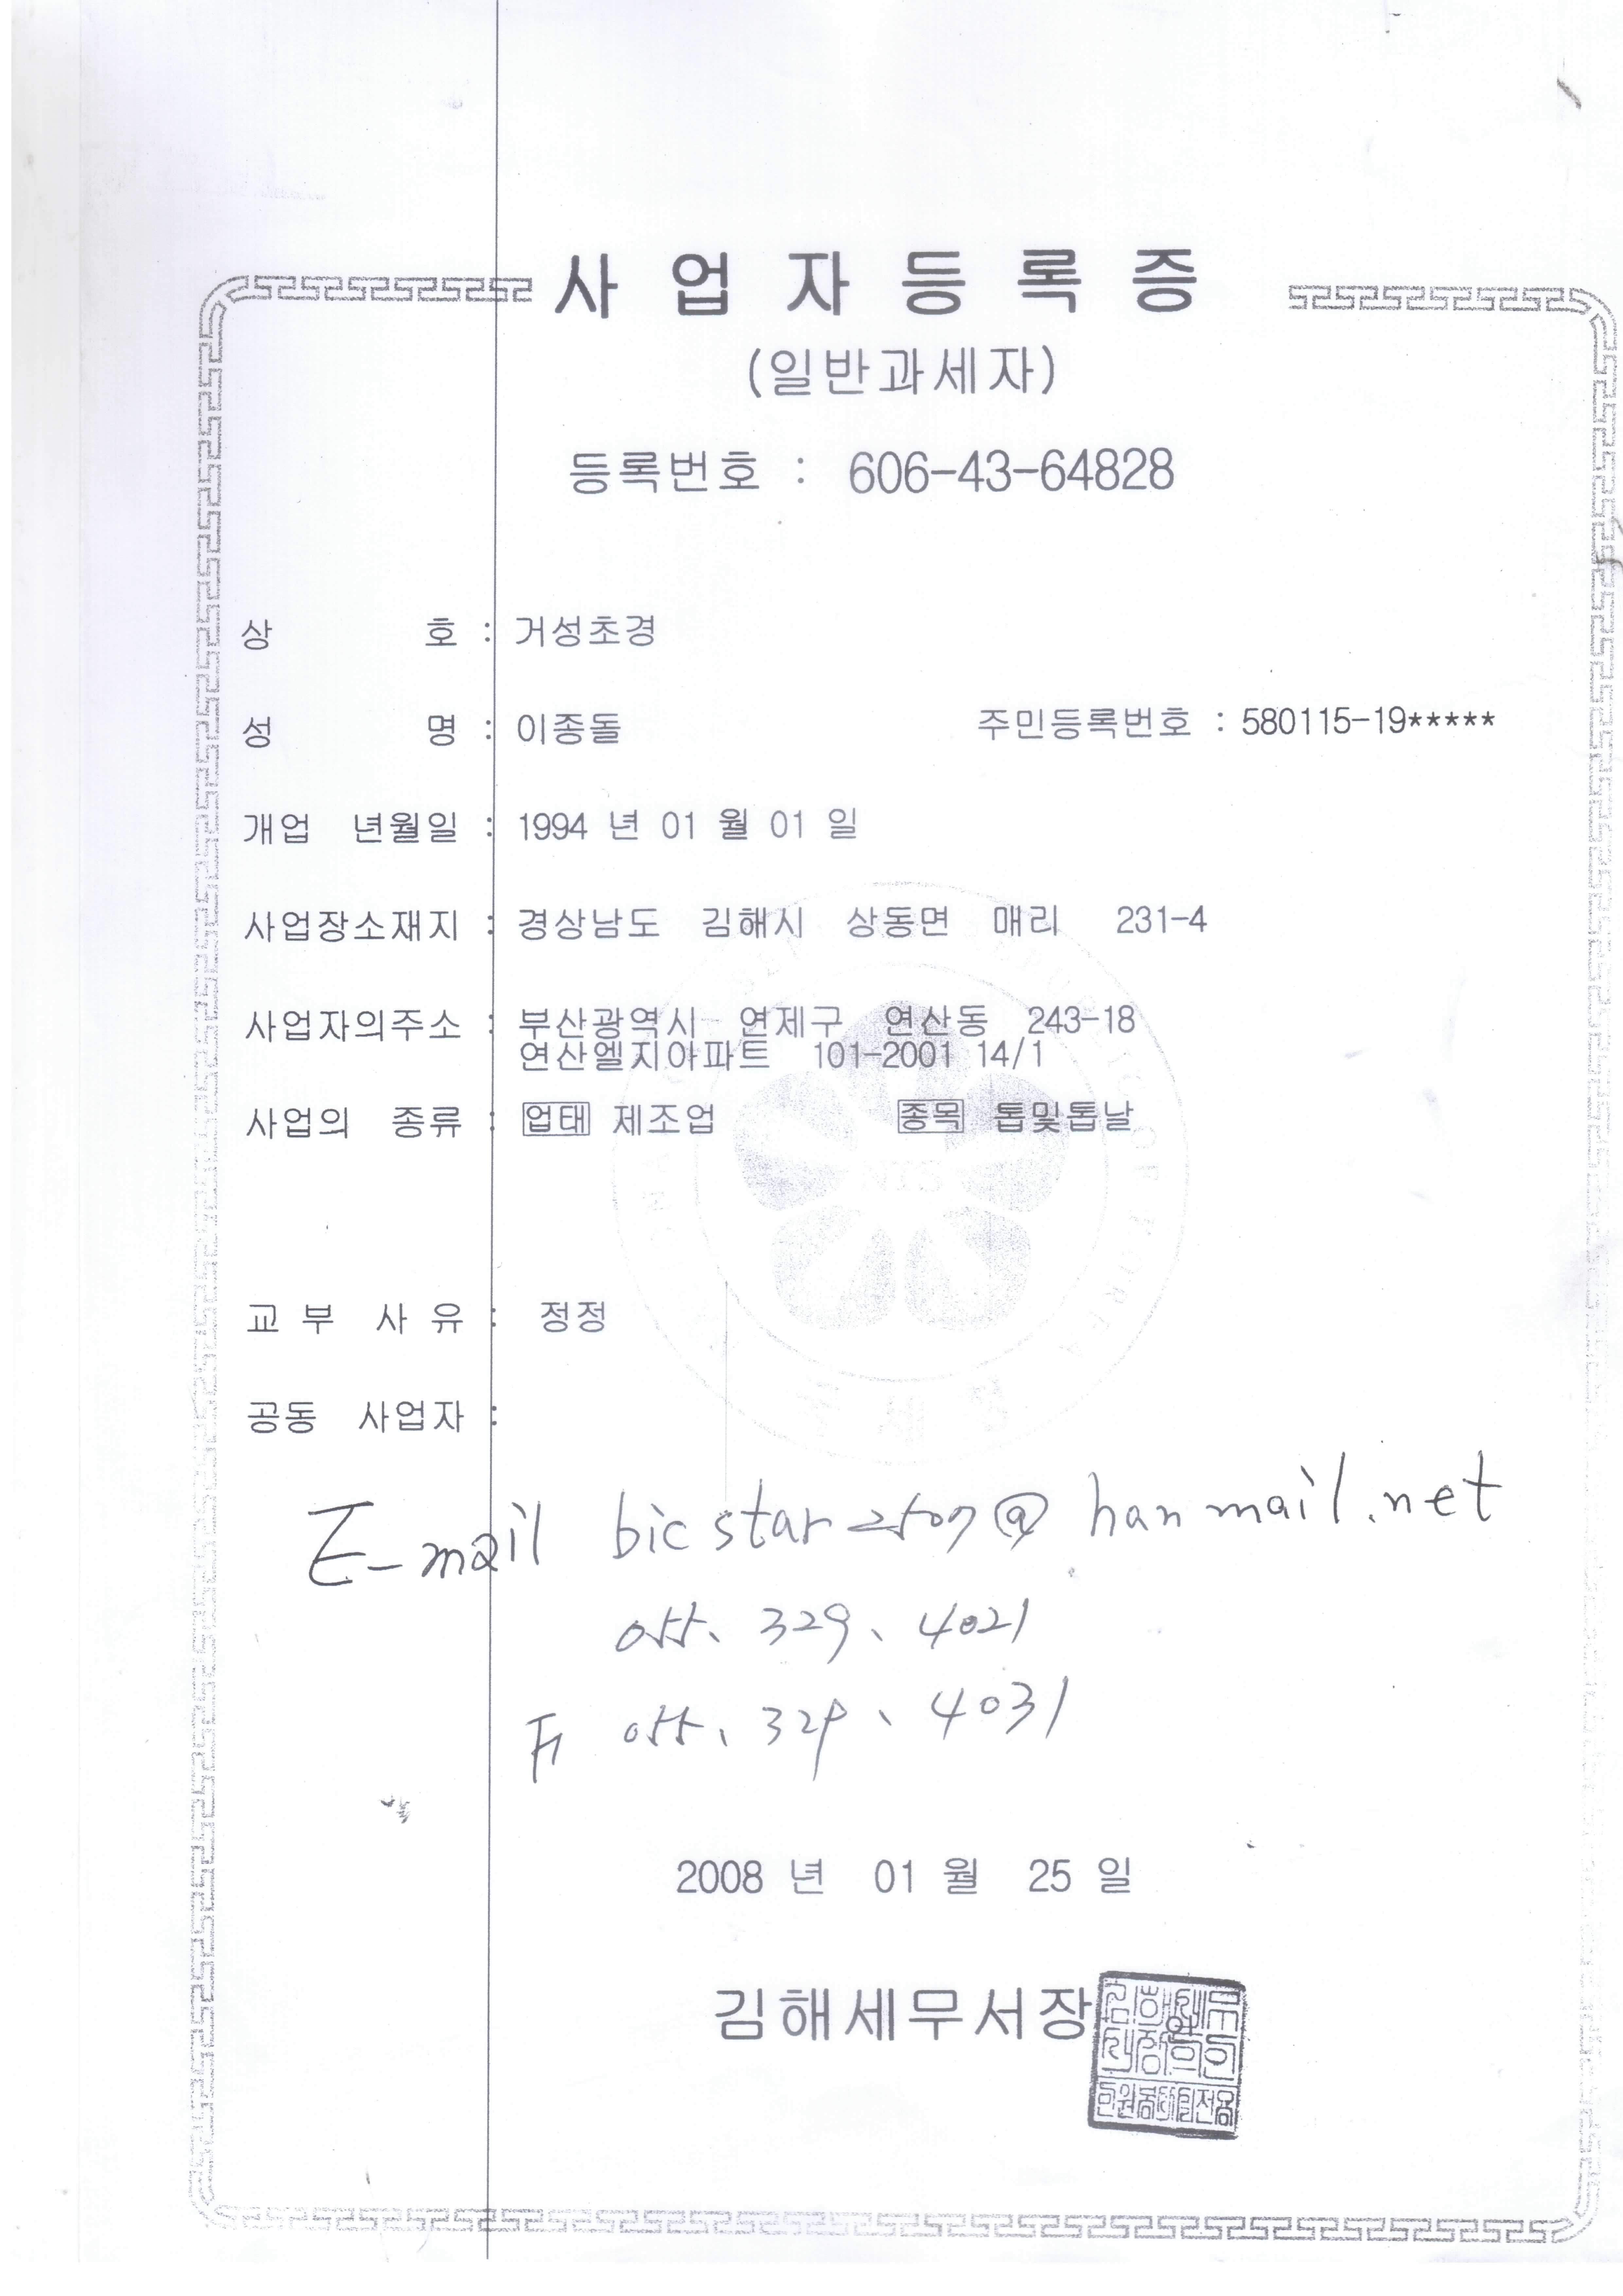 사업자등록증
(일반과세자)
등록번호 : 606-43-64828
상 호 : 거성초경
성 명 : 이종돌 주민등록번호 : 580115-19*****
개업 년월일 : 1994 년 01 월 01 일
사업장소재지 : 경상남도 김해시 상동면 매리 231-4
사업자의주소 : 부산광역시 연제구 연산동 243-18
연산엘지아파트 101-2001 14/1
사업의 종류 : 업태 제조업 종목 톱및톱날
교 부 사 유 : 정정
공동 사업자 :
E-mail bicstar @hanmail.net
055. 329. 4021
F 055. 329. 4031
2008 년 01 월 25 일
김해세무서장